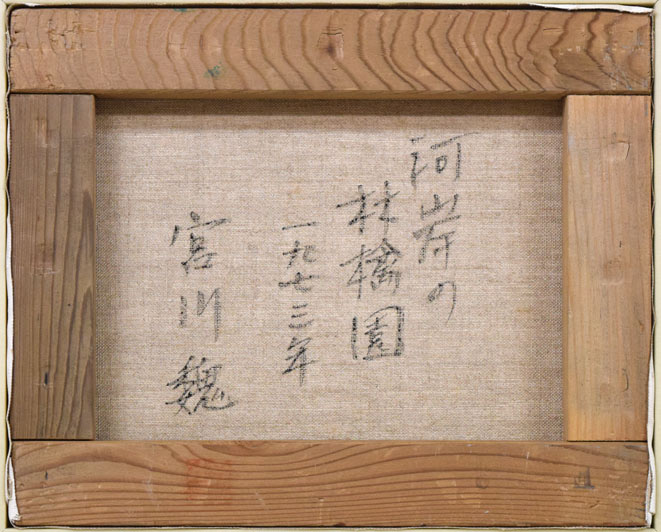 河岸の
林檎園
一九七三年
宮川魏